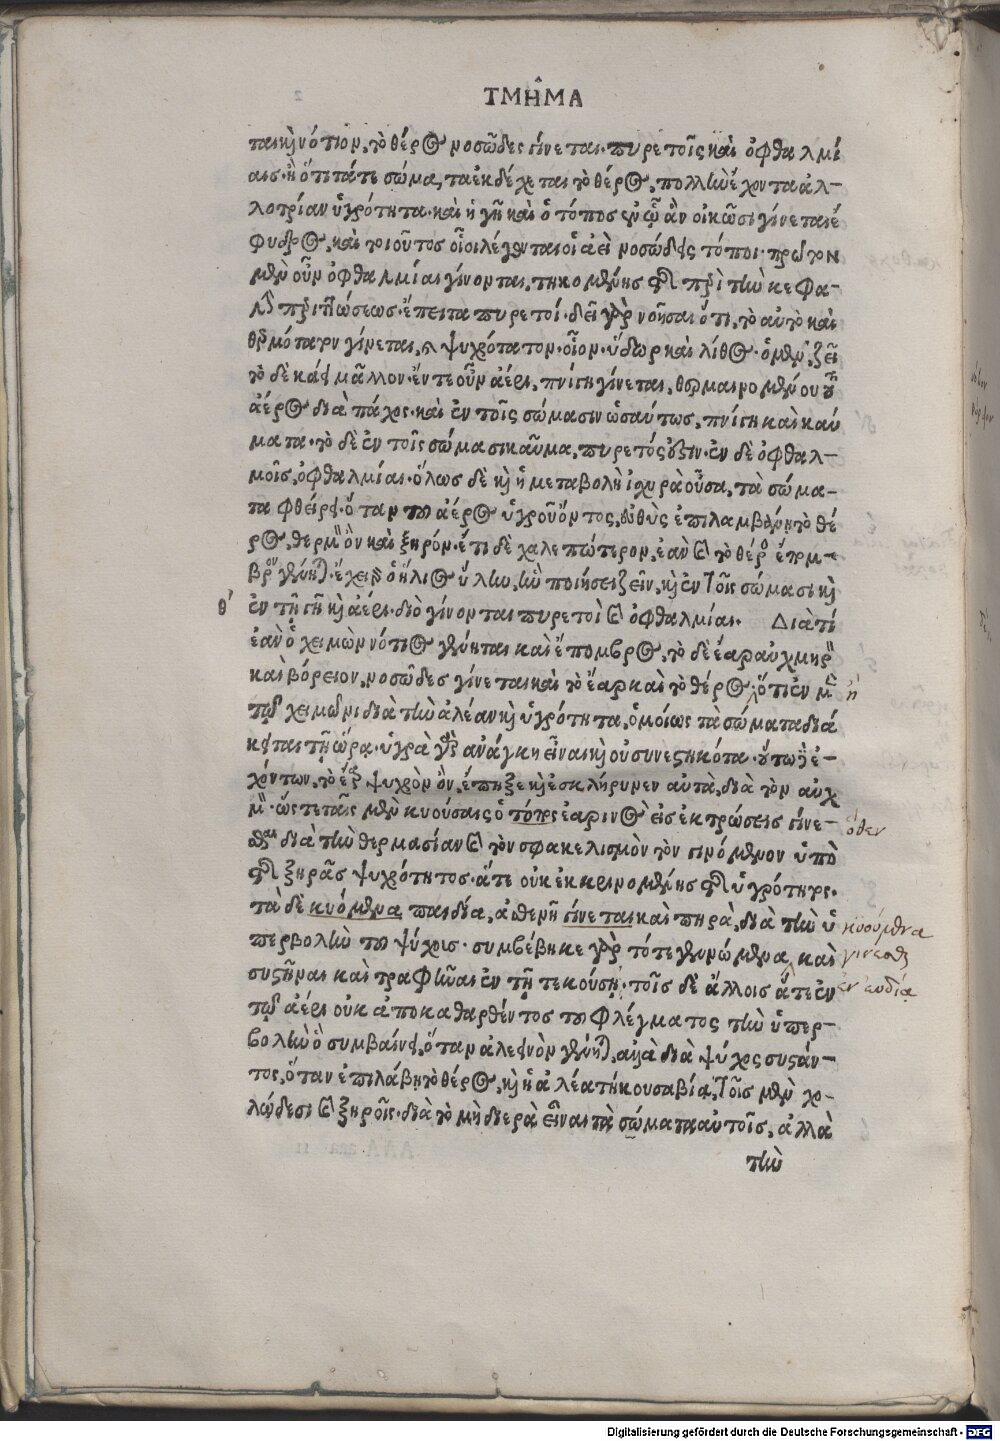 ΤΜΗ͂ΜΑ
ται καὶ νότιον, τὸ θέρος νοσῶδες γίνεται· πυρετοῖς καὶ ὀφθαλμί
αις· ἢ ὅτι τά τε σώμα, τα ἐκδέχεται τὸ θέρος, πολλὴν ἔχοντα ἀλ-
λοτρίαν ὑγρότητα· καὶ ἡ γῆ καὶ ὁ τόπος ἐν ᾧ ἂν οἰκῶσι γίνεται ἔ
φυδρος, καὶ τοιοῦτος οἷοι λέγονται οἱ ἀεὶ νοσώδεις τόποι· πρῶτον
μὲν οὖν ὀφθαλμίαι γίνονται, τηκομένης τῆς περὶ τὴν κεφα-
λὴν περιττώσεως· ἔπειτα πυρετοί· δεῖ γὰρ νοῆσαι ὅτι, τὸ αὐτὸ καὶ
θερμότατον γίνεται, καὶ ψυχρότατον· οἷον· ὕδωρ καὶ λίθος· ὁ μὲν, ζεῖ
τὸ δὲ κάει μᾶλλον· ἔν τε οὖν ἀέρι, πνίγη γίνεται, θερμαινομένου τοῦ
ἀέρος διὰ πάχος· καὶ ἐν τοῖς σώμασιν ὡσαύτως, πνίγη καὶ καύ
ματα· τὸ δὲ ἐν τοῖς σώμασι καῦμα, πυρετός ἐστιν· ἐν δὲ ὀφθαλ-
μοῖς, ὀφθαλμίαι· ὅλως δὲ καὶ ἡ μεταβολὴ ἰσχυρὰ οὖσα, τὰ σώμα-
τα φθείρει· ὅταν τοῦ ἀέρος ὑγροῦ ὄντος, εὐθὺς ἐπιλαμβάνῃ τὸ θέ
ρος, θερμὸν ὂν καὶ ξηρόν· ἔτι δὲ χαλεπώτερον, ἐὰν καὶ τὸ θέρος ἔπομ-
βρον γένηται· ἔχει γὰρ ὁ ἥλιος ὕλην, ἣν ποιήσει ζεῖν, καὶ ἐν τοῖς σώμασι καὶ
θ΄ ἐν τῇ γῇ καὶ ἀέρι· διὸ γίνονται πυρετοὶ καὶ ὀφθαλμίαι. Διὰ τί
ἐὰν ὁ χειμὼν νότιος γένηται καὶ ἔπομβρος, τὸ δὲ ἔαρ αὐχμηρὸν
καὶ βόρειον, νοσῶδες γίνεται καὶ τὸ ἔαρ καὶ τὸ θέρος, ὅτι ἐν μὲν ἢ
τῷ χειμῶνι διὰ τὴν ἀλέαν καὶ ὑγρότητα, ὁμοίως τὰ σώματα διά
κειται τῇ ὥρᾳ· ὑγρὰ γὰρ ἀνάγκη εἶναι καὶ οὐ συνεστηκότα· οὕτω δὲ ἐ-
χόντων, τὸ ἔαρ ψυχρὸν ὂν, ἔπηξε καὶ ἐσκλήρυνεν αὐτὰ, διὰ τὸν αὐχ
μόν· ὥστε ταῖς μὲν κυούσαις ὁ τόκος ἐαρινὸς εἰς ἐκτρώσεις γίνε- ὅθεν
σθαι διὰ τὴν θερμασίαν καὶ τὸν σφακελισμὸν τὸν γινόμενον ὑπὸ
τῆς ξηρᾶς ψυχρότητος· ἅτε οὐκ ἐκκρινομένης τῆς ὑγρότητος.
τὰ δὲ κυόμενα παιδία, ἀσθενῆ γίνεται καὶ πηρὰ, διὰ τὴν ὑ κυούμενα
περβολὴν τοῦ ψύχους· συμβέβηκε γὰρ τότε γενομένα, καὶ γίνεσθαι
συστῆναι καὶ τραφῆναι ἐν τῇ τεκούσῃ· τοῖς δὲ ἄλλοις ἅτε ἐν ἐν εὐδίᾳ
τῷ ἀέρι οὐκ ἀποκαθαρθέντος τοῦ φλέγματος τὴν ὑπερ-
βολὴν ὃ συμβαίνει, ὅταν ἀλεεινὸν γένηται, ἀλλὰ διὰ ψύχος συστάν-
τος, ὅταν ἐπιλάβῃ τὸ θέρος, καὶ ἡ ἀλέα τήκουσα βίᾳ, τοῖς μὲν χο-
λώδεσι καὶ ξηροῖς· διὰ τὸ μὴ διερὰ εἶναι τὰ σώματα αὐτοῖς, ἀλλὰ
τὴν
Digitalisierung gefördert durch die Deutsche Forschungsgemeinschaft - DFG